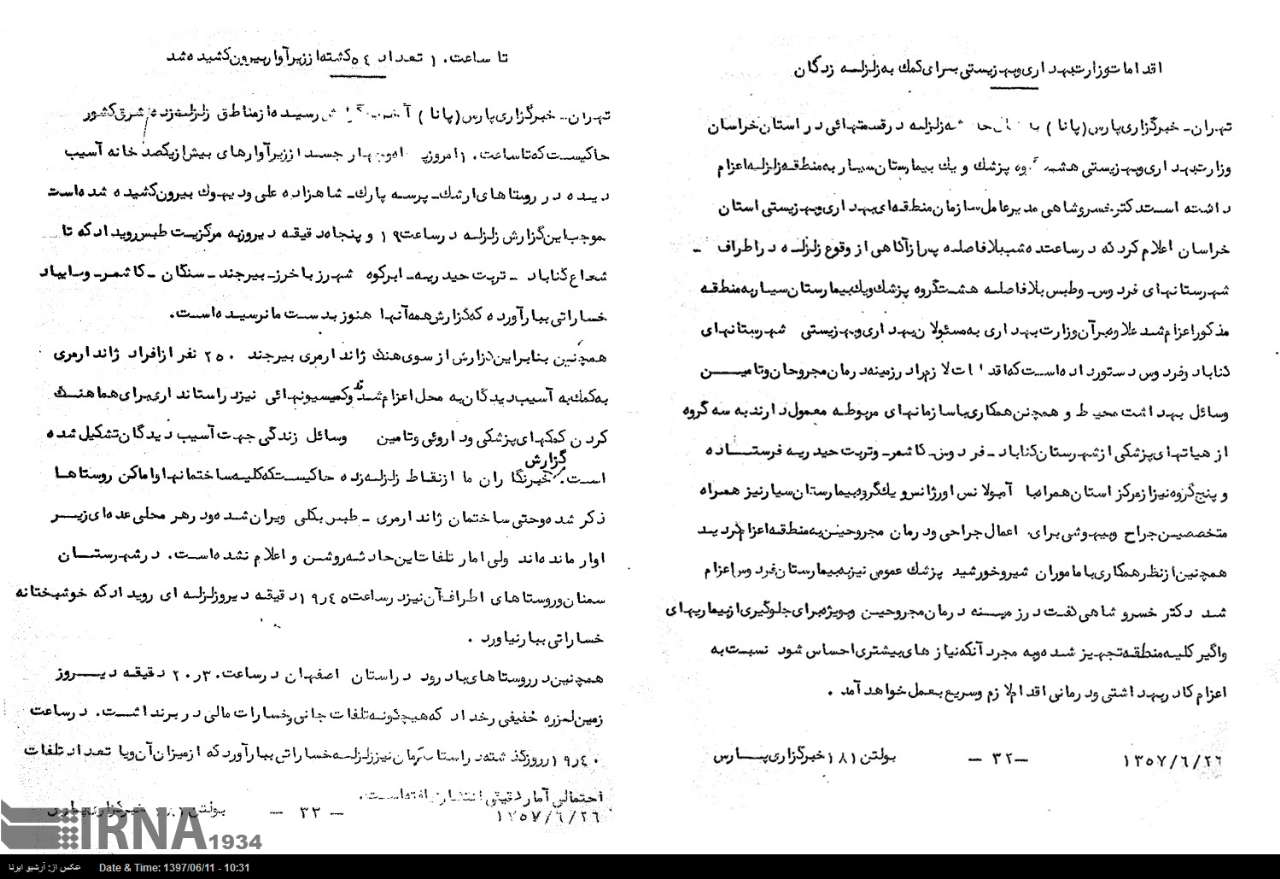 اقدامات وزارت بهداری و بهزیستی برای کمک به زلزله زدگان
تهران ـ خبرگزاری پارس (پانا) زلزله در قسمتهائی در استان خراسان
وزارت بهداری و بهزیستی هشت گروه پزشک و یک بیمارستان سیار به منطقه زلزله اعزام
داشته است دکتر خسرو شاهی مدیر عامل سازمان منطقه ای بهداری و بهزیستی استان
خراسان اعلام کرد که در ساعت ده شب بلافاصله پس از آگاهی از وقوع زلزله در اطراف ـ
شهرستانهای فردوس ـ و طبس بلافاصله هشت گروه پزشک و یک بیمارستان سیار به منطقه
مذکور اعزام شد علاوه بر آن وزارت بهداری به مسئولان بهداری و بهزیستی شهرستانهای
گناباد و فردوس دستور داده است که اقدامات لازم را در زمینه درمان مجروحان و تامین
وسائل بهداشت محیط و همچنین همکاری با سازمانهای مربوطه معمول دارند به سه گروه
از هیاتهای پزشکی از شهرستان گناباد ـ فردوس ـ کاشمر ـ و تربت حیدریه فرستاده
و پنج گروه نیز از مرکز استان همراه با آمبولانس اورژانس و یک گروه بیمارستان سیار نیز همراه
متخصصین جراح و بیهوشی برای اعمال جراحی و درمان مجروحین به منطقه اعزام گردید
همچنین از نظر همکاری با ماموران شیر و خورشید پزشک عمومی نیز به بیمارستان فردوس اعزام
شد دکتر خسرو شاهی گفت در زمینه درمان مجروحین و بویژه برای جلوگیری از بیماریهای
واگیر کلیه منطقه تجهیز شده و به مجرد آنکه نیازهای بیشتری احساس شود نسبت به
اعزام کادر بهداشتی و درمانی اقدام لازم و سریع بعمل خواهد آمد.
۱۳۵۷/۶/۲۶ ـ ۳۲ ـ بولتن ۱۸۱ خبرگزاری پارس
تا ساعت ۱۰ تعداد ۵۴ کشته از زیر آوار بیرون کشیده شد
تهران ـ خبرگزاری پارس (پانا) رسیده از مناطق زلزله زده شرق کشور
حاکیست که تا ساعت ۱۰ امروز پنجاه و چهار جسد از زیر آوارهای بیش از یکصد خانه آسیب
دیده در روستاهای ارشک ـ پرسه پارک ـ شاهزاده علی و دیهوک بیرون کشیده شده است
بموجب این گزارش زلزله در ساعت ۱۹ و پنجاه دقیقه دیروز به مرکزیت طبس رویداد که تا
شعاع گناباد ـ تربت حیدریه ـ ابرکوه شهرز باخرز ـ بیرجند ـ سنگان ـ کاشمر ـ و سایباد
خساراتی ببار آورده که گزارش همه آنها هنوز بدست ما نرسیده است.
همچنین بنابر این گزارش از سوی هنگ ژاندارمری بیرجند ۲۵۰ نفر از افراد ژاندارمری
به کمک به آسیب دیدگان به محل اعزام شد و کمیسیونهائی نیز در استانداری برای هماهنگ
کردن کمکهای پزشکی و داروئی و تامین وسائل زندگی جهت آسیب دیدگان تشکیل شده
است. گزارش خبرنگاران ما از نقاط زلزله زده حاکیست که کلیه ساختمانها و اماکن روستاها
ذکر شده و حتی ساختمان ژاندارمری ـ طبس بکلی ویران شده و در هر محلی عده ای زیر
اوار مانده اند ولی امار تلفات این حادثه روشن و اعلام نشده است. در شهرستان
سمنان و روستاهای اطراف آن نیز در ساعت ۱۹٫۴۵ دقیقه دیروز زلزله ای رویداد که خوشبختانه
خساراتی ببار نیاورد.
همچنین در روستاهای بادرود در استان اصفهان در ساعت ۲۰٫۳۰ دقیقه دیروز
زمین لرزه خفیفی رخداد که هیچگونه تلفات جانی و خسارات مالی در بر نداشت. در ساعت
۱۹٫۴۰ روز گذشته در استان کرمان نیز زلزله خساراتی ببار آورد که از میزان آن و یا تعداد تلفات
احتمالی آمار دقیقی انتشار نیافته است.
۱۳۵۷/۶/۲۶ ـ ۳۳ ـ بولتن ۱۸۱ خبرگزاری پارس
IRNA 1934
عکس از: آرشیو ایرنا Date & Time: 1397/06/11 - 10:31